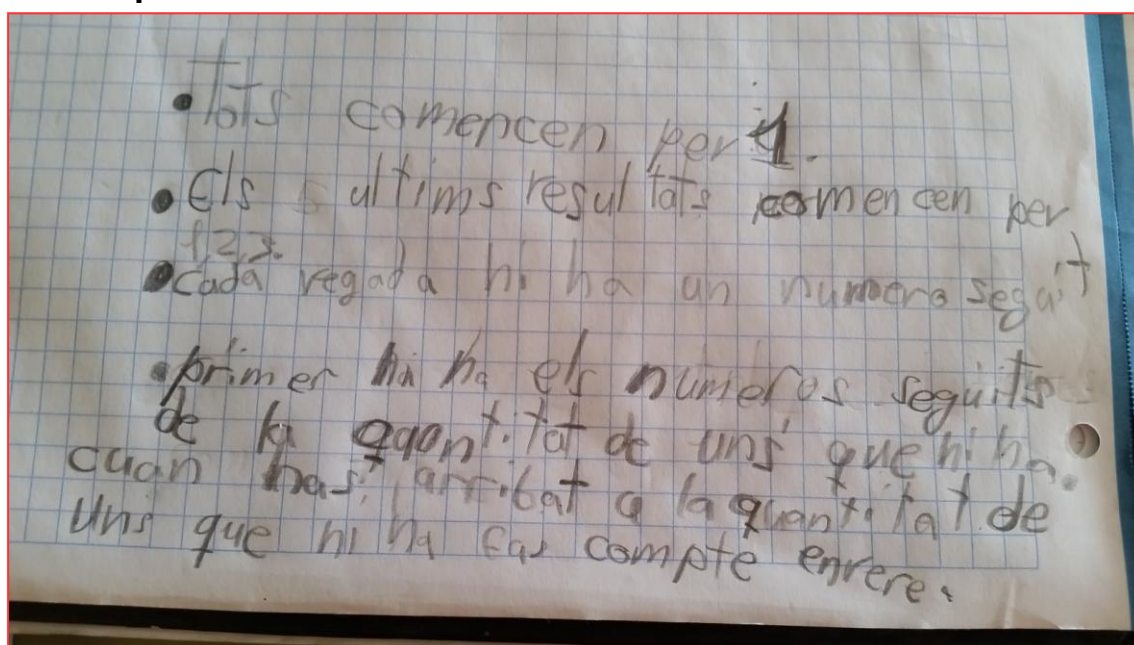 • Tots comencen per 1.
• Els 5 ultims resultats comencen per
1,2,3.
• cada vegada hi ha un numero seguit
• primer hi ha els números seguits
de la quantitat de uns que hi ha.
cuan has arribat a la quantitat de
Uns que hi ha fas compte enrere.